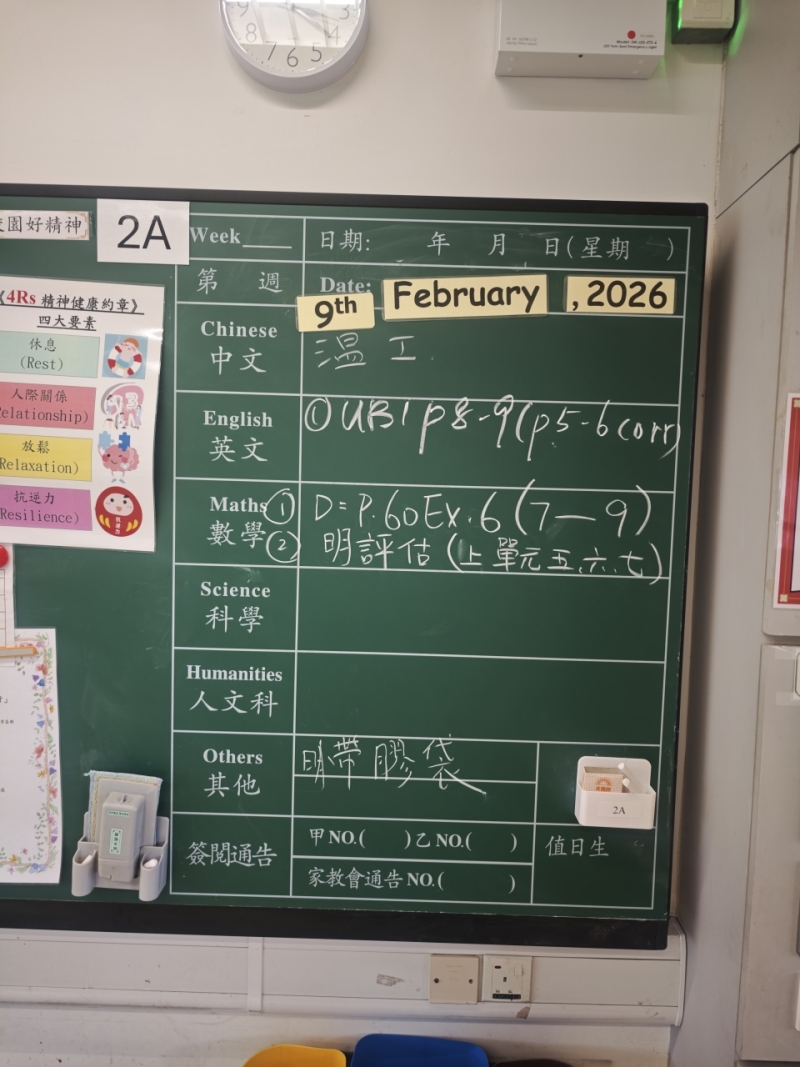 園好精神
2A
Week
日期: 年 月 日(星期 )
第 週
Date:
9th February , 2026
《4Rs 精神健康約章》
四大要素
休息
(Rest)
人際關係
Relationship)
放鬆
Relaxation)
抗逆力
Resilience)
Chinese
中文
溫工.
English
英文
① UB1 p8-9(p5-6 corr)
Maths
數學
① D=P.60Ex.6(7—9)
② 明評估(上單元五、六、七)
Science
科學
Humanities
人文科
Others
其他
明帶膠袋
2A
簽閱通告
甲NO.( )乙NO.( )
家教會通告NO.( )
值日生